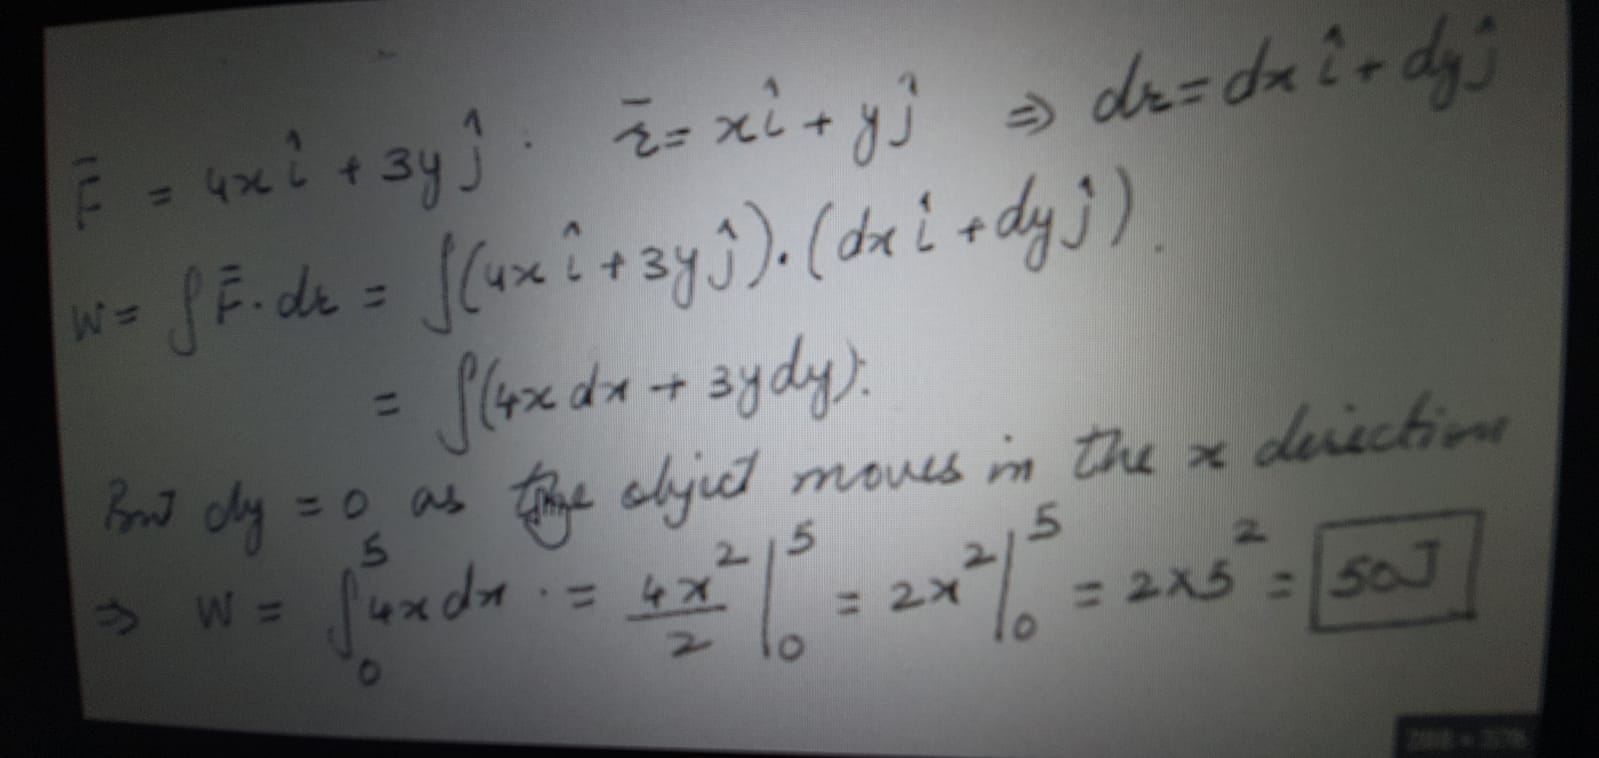 F̄ = 4x î + 3y ĵ . r̄ = x î + y ĵ ⇒ dr = dx î + dy ĵ
W = ∫ F̄ . dr = ∫(4x î + 3y ĵ).(dx î + dy ĵ).
= ∫(4x dx + 3y dy).
But dy = 0 as the object moves in the x direction
⇒ W = ∫₀⁵ 4x dx . = 4x²/2 |₀⁵ = 2x² |₀⁵ = 2×5² = 50J